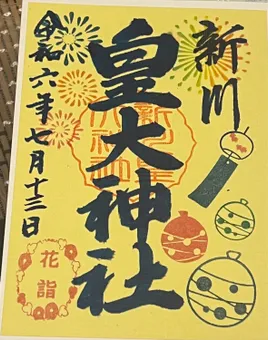 新川
皇大神社
令和六年七月十三日
花詣